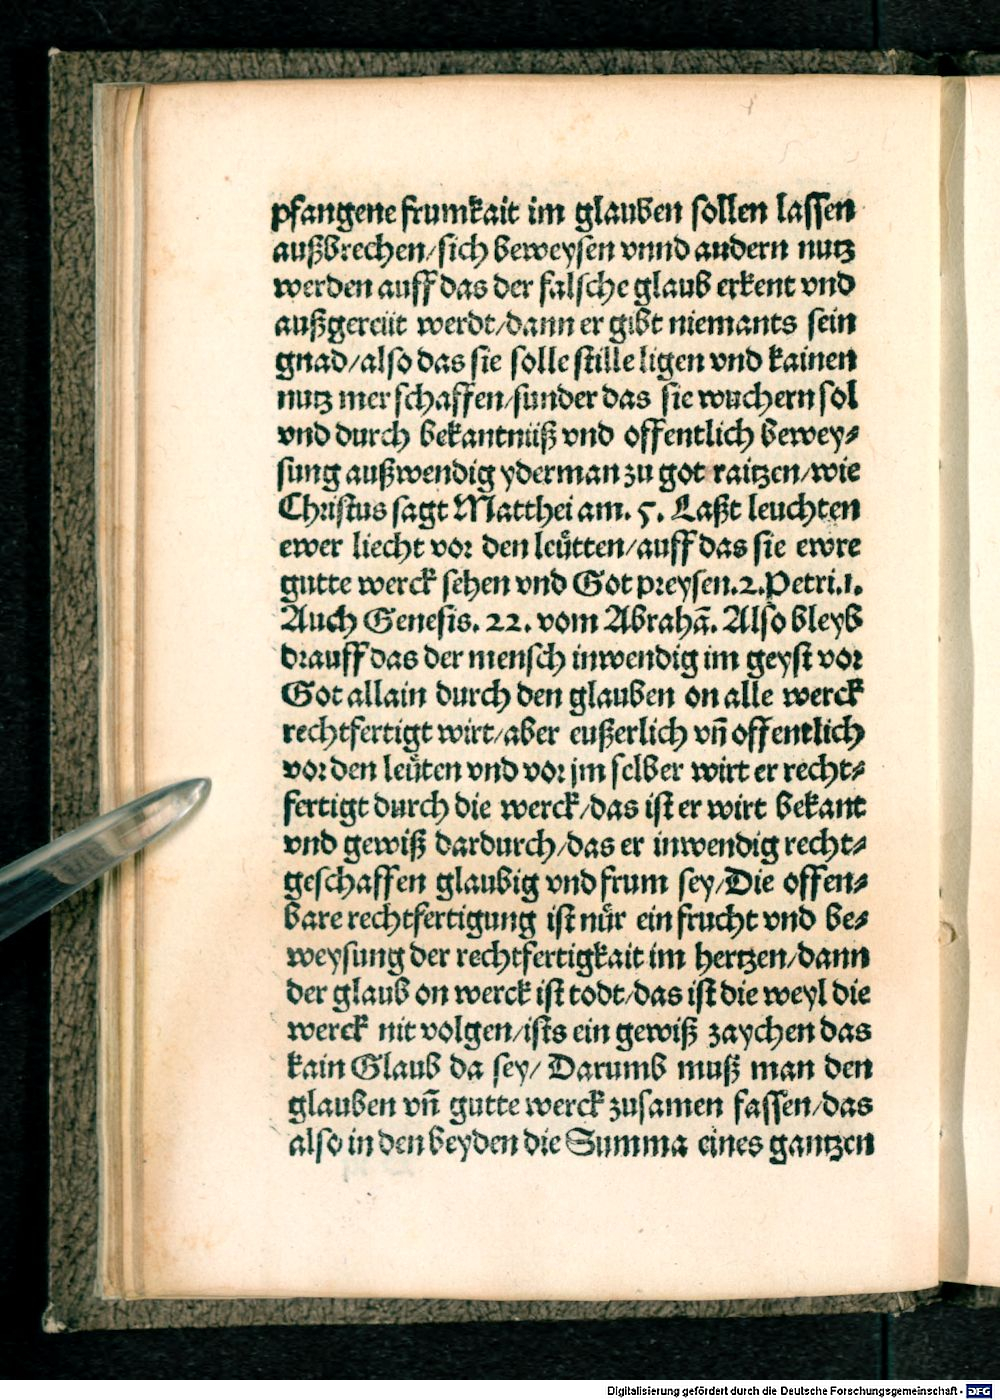 pfangene frumkait im glauben sollen lassen
außbrechen/sich beweysen vnnd andern nutz
werden auff das der falsche glaub erkent vnd
außgereüt werdt/dann er gibt niemants sein
gnad/also das sie solle stille ligen vnd kainen
nutz mer schaffen/sunder das sie wuchern sol
vnd durch bekantnüß vnd offentlich bewey⸗
sung außwendig yderman zu got raitzen/wie
Christus sagt Matthei am. 5. Laßt leuchten
ewer liecht vor den leütten/auff das sie ewre
gutte werck sehen vnd Got preysen.2.Petri.1.
Auch Genesis. 22. vom Abrahã. Also bleyb
drauff das der mensch inwendig im geyst vor
Got allain durch den glauben on alle werck
rechtfertigt wirt/aber eußerlich vñ offentlich
vor den leüten vnd vor jm selber wirt er recht⸗
fertigt durch die werck/das ist er wirt bekant
vnd gewiß dardurch/das er inwendig recht⸗
geschaffen glaubig vnd frum sey/Die offen⸗
bare rechtfertigung ist nůr ein frucht vnd be⸗
weysung der rechtfertigkait im hertzen/dann
der glaub on werck ist todt/das ist die weyl die
werck nit volgen/ists ein gewiß zaychen das
kain Glaub da sey/ Darumb muß man den
glauben vñ gutte werck zusamen fassen/das
also in den beyden die Summa eines gantzen
Digitalisierung gefördert durch die Deutsche Forschungsgemeinschaft - DFG